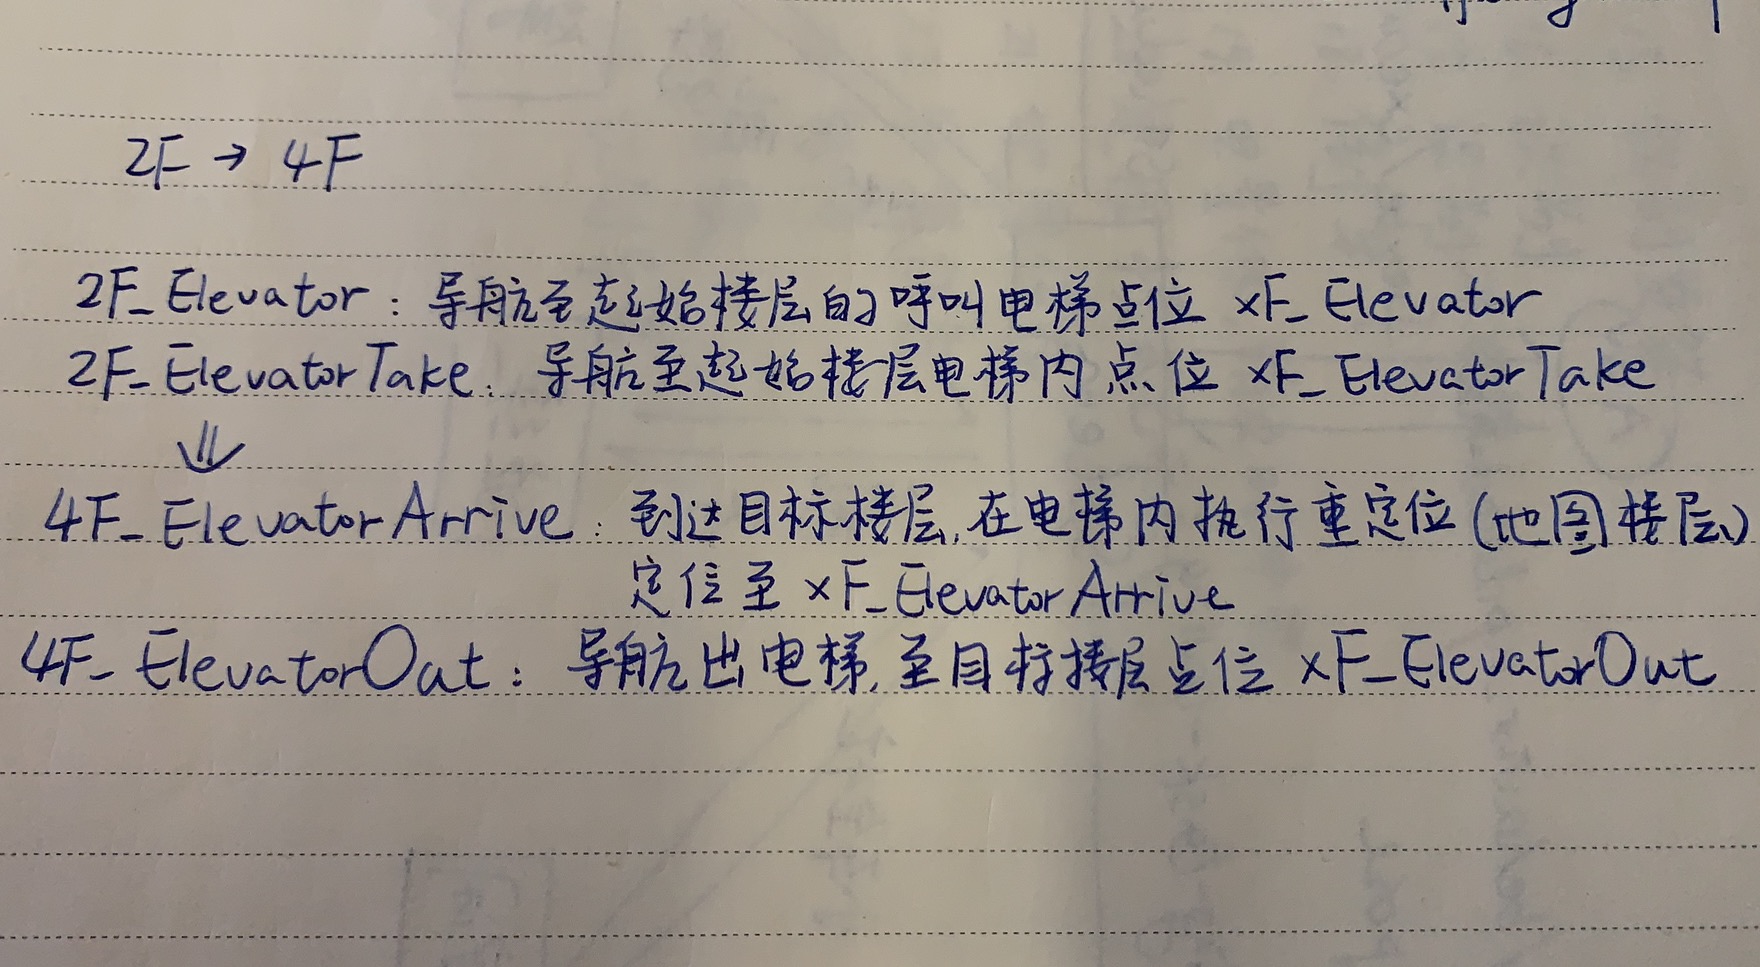 2F → 4F
2F_Elevator：导航至起始楼层的呼叫电梯点位 xF_Elevator
2F_ElevatorTake：导航至起始楼层电梯内点位 xF_ElevatorTake
⇓
4F_ElevatorArrive：到达目标楼层,在电梯内执行重定位(地图楼层)
定位至 xF_ElevatorArrive
4F_ElevatorOut：导航出电梯,至目标楼层点位 xF_ElevatorOut